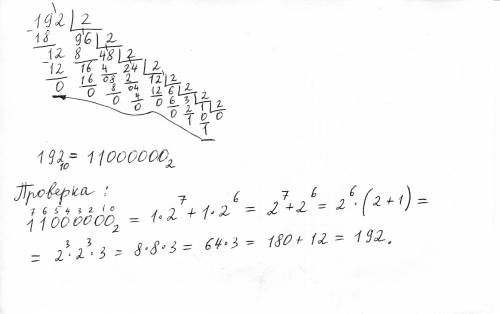 192 | 2
18 96 | 2
12 8 48 | 2
12 16 4 24 | 2
0 16 08 2 12 | 2
0 8 04 12 6 | 2
0 4 0 6 3 | 2
0 0 2 1 | 2
1 0 0
1
192₁₀ = 11000000₂
Проверка:
7 6 5 4 3 2 1 0
11000000₂ = 1·2⁷ + 1·2⁶ = 2⁷ + 2⁶ = 2⁶·(2+1) =
= 2³·2³·3 = 8·8·3 = 64·3 = 180 + 12 = 192.